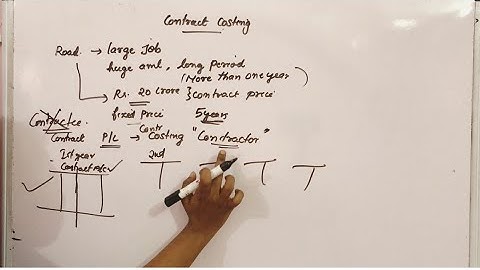 Contract Costing
Road → large Job
huge amt, long period
(More than one year)
→ Rs. 20 Crore } contract price
fixed Price 5 years
Contractee
Contr
Contract P/L → Costing "Contractor"
1st year 2nd
Contract P/L